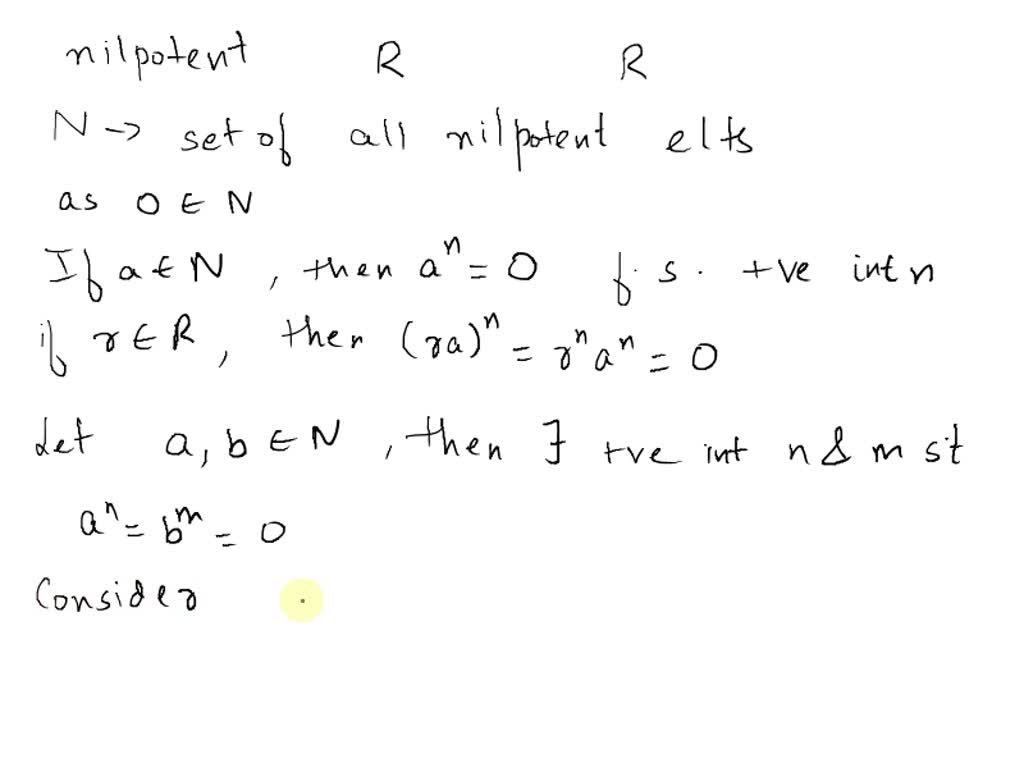 nilpotent R R
N → set of all nilpotent elts
as 0 ∈ N
If a ∈ N, then aⁿ = 0 f.s. +ve int n
if r ∈ R, then (ra)ⁿ = rⁿaⁿ = 0
Let a, b ∈ N, then ∃ +ve int n & m st
aⁿ = bᵐ = 0
Consider